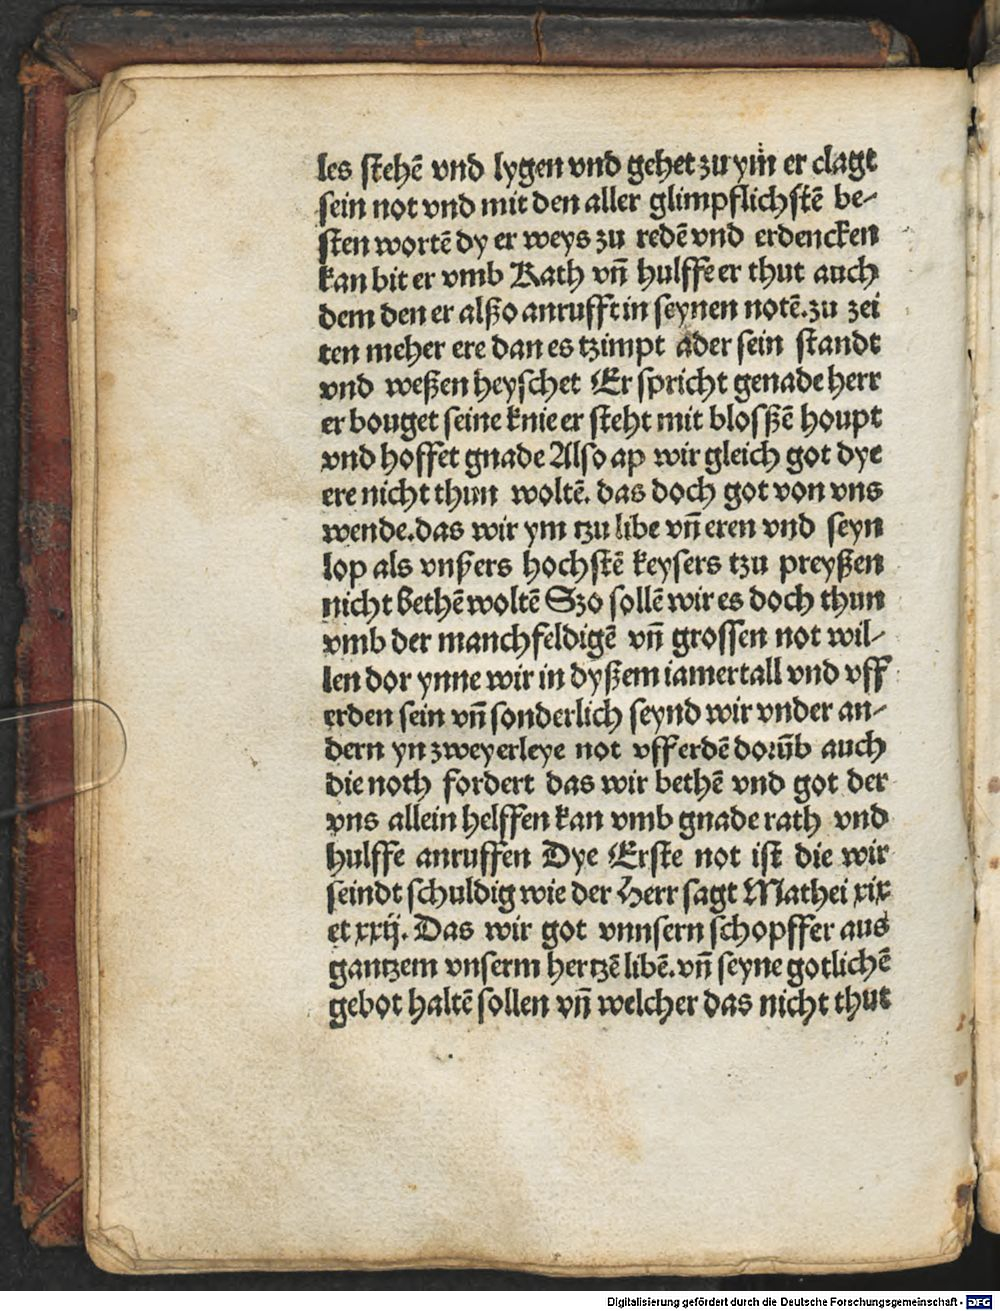 les stehē vnd lygen vnd gehet zu ym̄ er clagt
sein not vnd mit den aller glimpflichstē be⸗
sten wortē dy er weys zu redē vnd erdencken
kan bit er vmb Rath vn̄ hulffe er thut auch
dem den er alßo anrufft in seynen notē. zu zei
ten meher ere dan es tzimpt ader sein standt
vnd weßen heyschet Er spricht genade herr
er bouget seine knie er steht mit blosßē houpt
vnd hoffet gnade Also ap wir gleich got dye
ere nicht thun woltē. das doch got von vns
wende. das wir ym tzu libe vn̄ eren vnd seyn
lop als vnßers hochstē keysers tzu preyßen
nicht bethē woltē Szo sollē wir es doch thun
vmb der manchfeldigē vn̄ grossen not wil⸗
len dor ynne wir in dyßem iamertall vnd vff
erden sein vn̄ sonderlich seynd wir vnder an⸗
dern yn zweyerleye not vff erdē dorūb auch
die noth fordert das wir bethē vnd got der
vns allein helffen kan vmb gnade rath vnd
hulffe anruffen Dye Erste not ist die wir
seindt schuldig wie der Herr sagt Mathei xix
et xxij. Das wir got vnnsern schopffer aus
gantzem vnserm hertzē libē. vn̄ seyne gotlichē
gebot haltē sollen vn̄ welcher das nicht thut
Digitalisierung gefördert durch die Deutsche Forschungsgemeinschaft - DFG